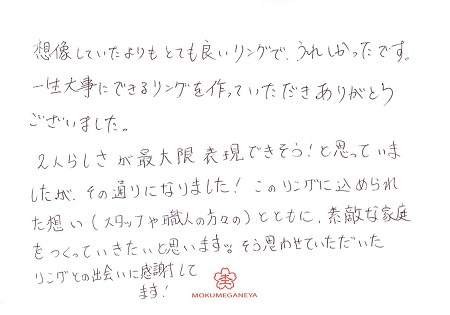 想像していたよりもとても良いリングで、うれしかったです。
一生大事にできるリングを作っていただきありがとう
ございました。
2人らしさが最大限表現できそう！と思っていま
したが、その通りになりました！このリングに込められ
た想い（スタッフや職人の方々の）とともに、素敵な家庭
をつくっていきたいと思います。そう思わせていただいた
リングとの出会いに感謝して
ます！
MOKUMEGANEYA